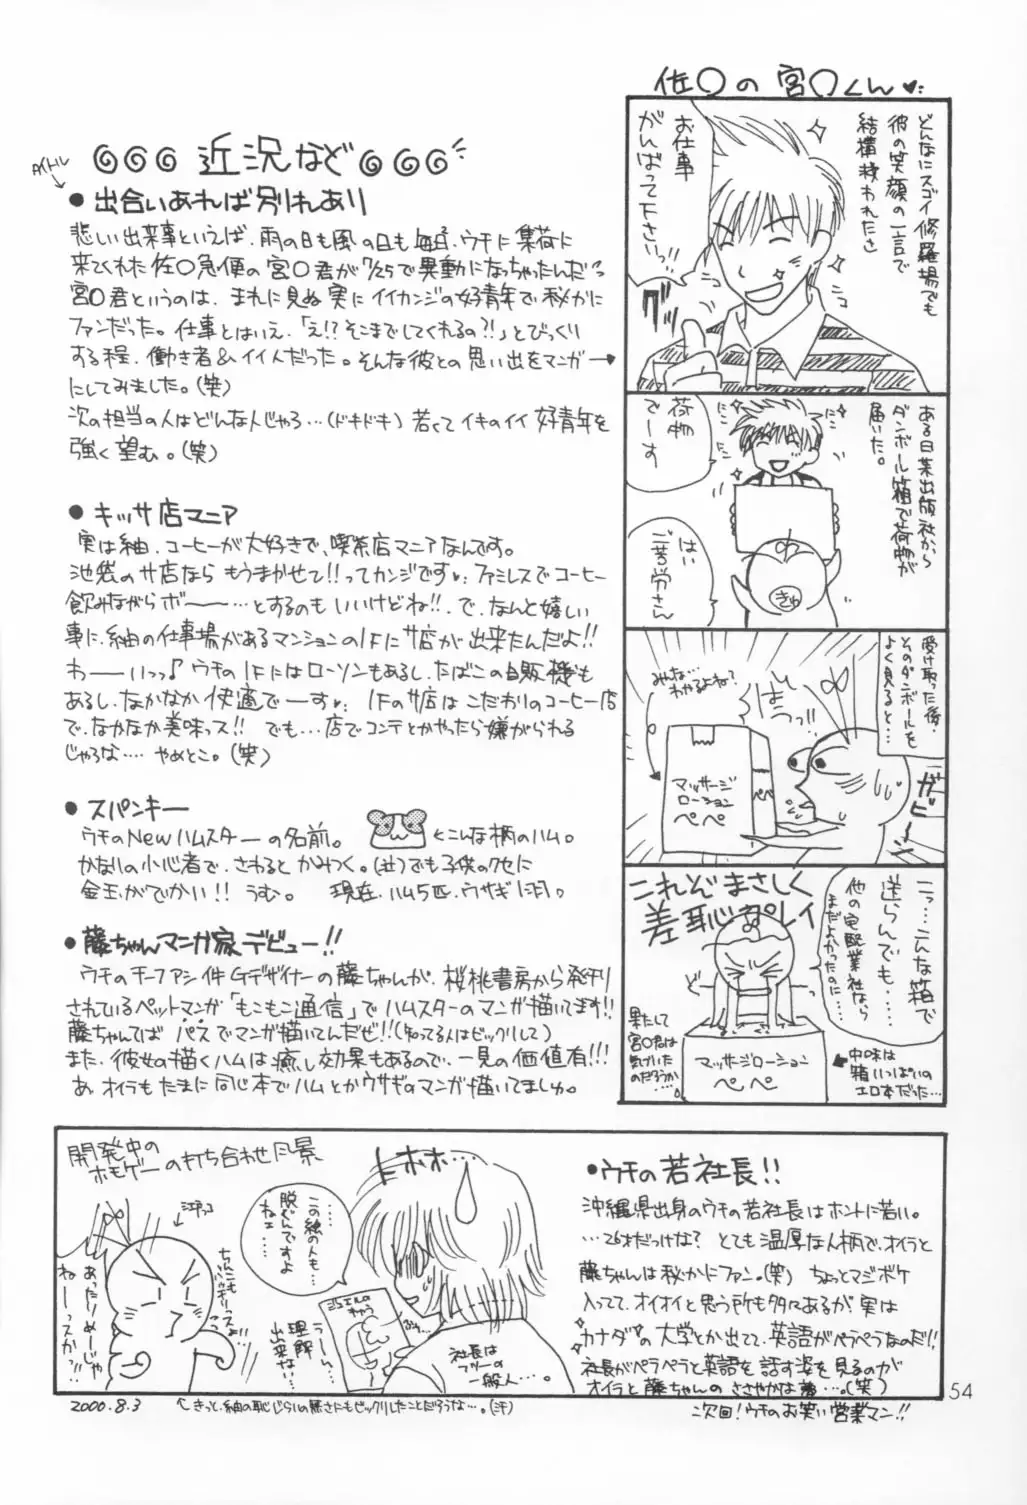 ◎◎◎ 近況など ◎◎◎
タイトル
●出合いあれば別れあり
悲しい出来事といえば、雨の日も風の日も毎日、ウチに集荷に
来てくれた佐〇急便の宮〇君が7/25で異動になっちゃったんだっ
宮〇君というのは、まれに見ぬ実にイイカンジの好青年で秘かに
ファンだった。仕事とはいえ、「え!?そこまでしてくれるの?!」とびっくり
する程、働き者&イイ人だった。そんな彼との思い出をマンガ→
にしてみました。(笑)
次の担当の人はどんな人じゃろ…(ドキドキ) 若くてイキのイイ好青年を
強く望む。(笑)
●キッサ店マニア
実は紬、コーヒーが大好きで、喫茶店マニアなんです。
池袋のサ店なら もうまかせて!!ってカンジです♥ ファミレスでコーヒー
飲みながらボ――…とするのもいいけどね!!、で、なんと嬉しい
事に、紬の仕事場があるマンションの1Fにサ店が出来たんだよ!!
わ――いっっ♪ ウチの1Fにはローソンもあるし、たばこの自販機も
あるし、なかなか快適でーす♥ 1Fのサ店はこだわりのコーヒー店
で、なかなか美味っス!! でも…店でコンテとかやったら嫌がられる
じゃろな…… やめとこ。(笑)
●スパンキー
ウチのNewハムスターの名前。 ←こんな柄のハム。
かなりの小心者で、さわるとかみつく。(泣)でも子供のクセに
金玉がでかい!! うむ。 現在、ハム5匹、ウサギ1羽。
●藤ちゃんマンガ家デビュー!!
ウチのチーファシ件Gデザイナーの藤ちゃんが、桜桃書房から発刊
されているペットマンガ「もこもこ通信」でハムスターのマンガ描いてます!!
藤ちゃんてば パスでマンガ描いてんだぜ!!(知ってる人はビックリして)
また、彼女の描くハムは癒し効果もあるので、一見の価値有!!!
あ、オイラもたまに同じ本でハムとかウサギのマンガ描いてましゅ。
佐〇の宮〇くん♥
どんなにスゴイ修羅場でも
彼の笑顔の一言で
結構救われたさ
お仕事
がんばって下さいっ
グッ
ニコ
ニコ
ある日某出版社から
ダンボール箱で荷物が
届いた。
荷物
でーす
はい
ご苦労さん
きゅ
受け取った後、
そのダンボールを
よく見ると…
みんな…
わかるよね?
はうっ!!
ガビーン
マッサージ
ローション
ペペ
ペペ
これぞまさしく
差恥プレイ
こっ…こんな箱で
送らんでも……
他の宅配業社なら
まだよかったのに…
果たして
宮〇君は
気づいた
のだろうか
……。
マッサージローション
ペペ
中味は
箱いっぱいの
エロ本だった…
開発中の
ホモゲーの打ち合わせ風景
トホホ…
江戸っコ
この絵の人も…
脱ぐんですよ
ねェ……
あったりめーじゃ
ねーっスかっ!!
うーん…
理解
出来ない…
社長は
フツーの
一般人…。
●ウチの若社長!!
沖縄県出身のウチの若社長はホントに若い。
…26才だっけな? とても温厚な人柄で、オイラと
藤ちゃんは秘かにファン。(笑) ちょっとマジボケ
入ってて、オイオイと思う所も多々あるが、実は
カナダの大学とか出てて、英語がペラペラなのだ!!
社長がペラペラと英語を話す姿を見るのが
オイラと藤ちゃんのささやかな幸…。(笑)
2000.8.3
↑きっと、紬の恥じらいの無さにもビックリしたことだろうな…。(汗)
次回!ウチのお笑い営業マン!!
54